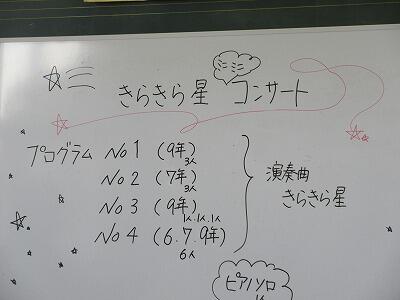 きらきら星 ミニミニ コンサート
プログラム No 1 (9年)
3人
No 2 (7年)
3人
No 3 (9年)
1人.1人.1人
No 4 (6.7.9年)
6人
演奏曲
きらきら星
ピアノソロ